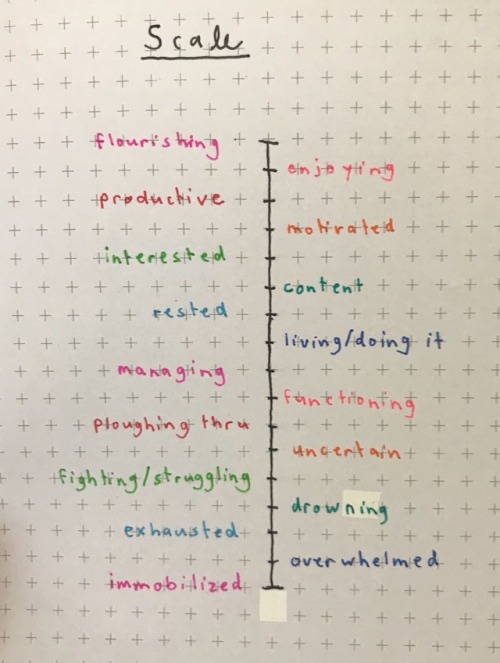 Scale
flourishing
enjoying
productive
motivated
interested
content
rested
living/doing it
managing
functioning
ploughing thru
uncertain
fighting/struggling
drowning
exhausted
overwhelmed
immobilized